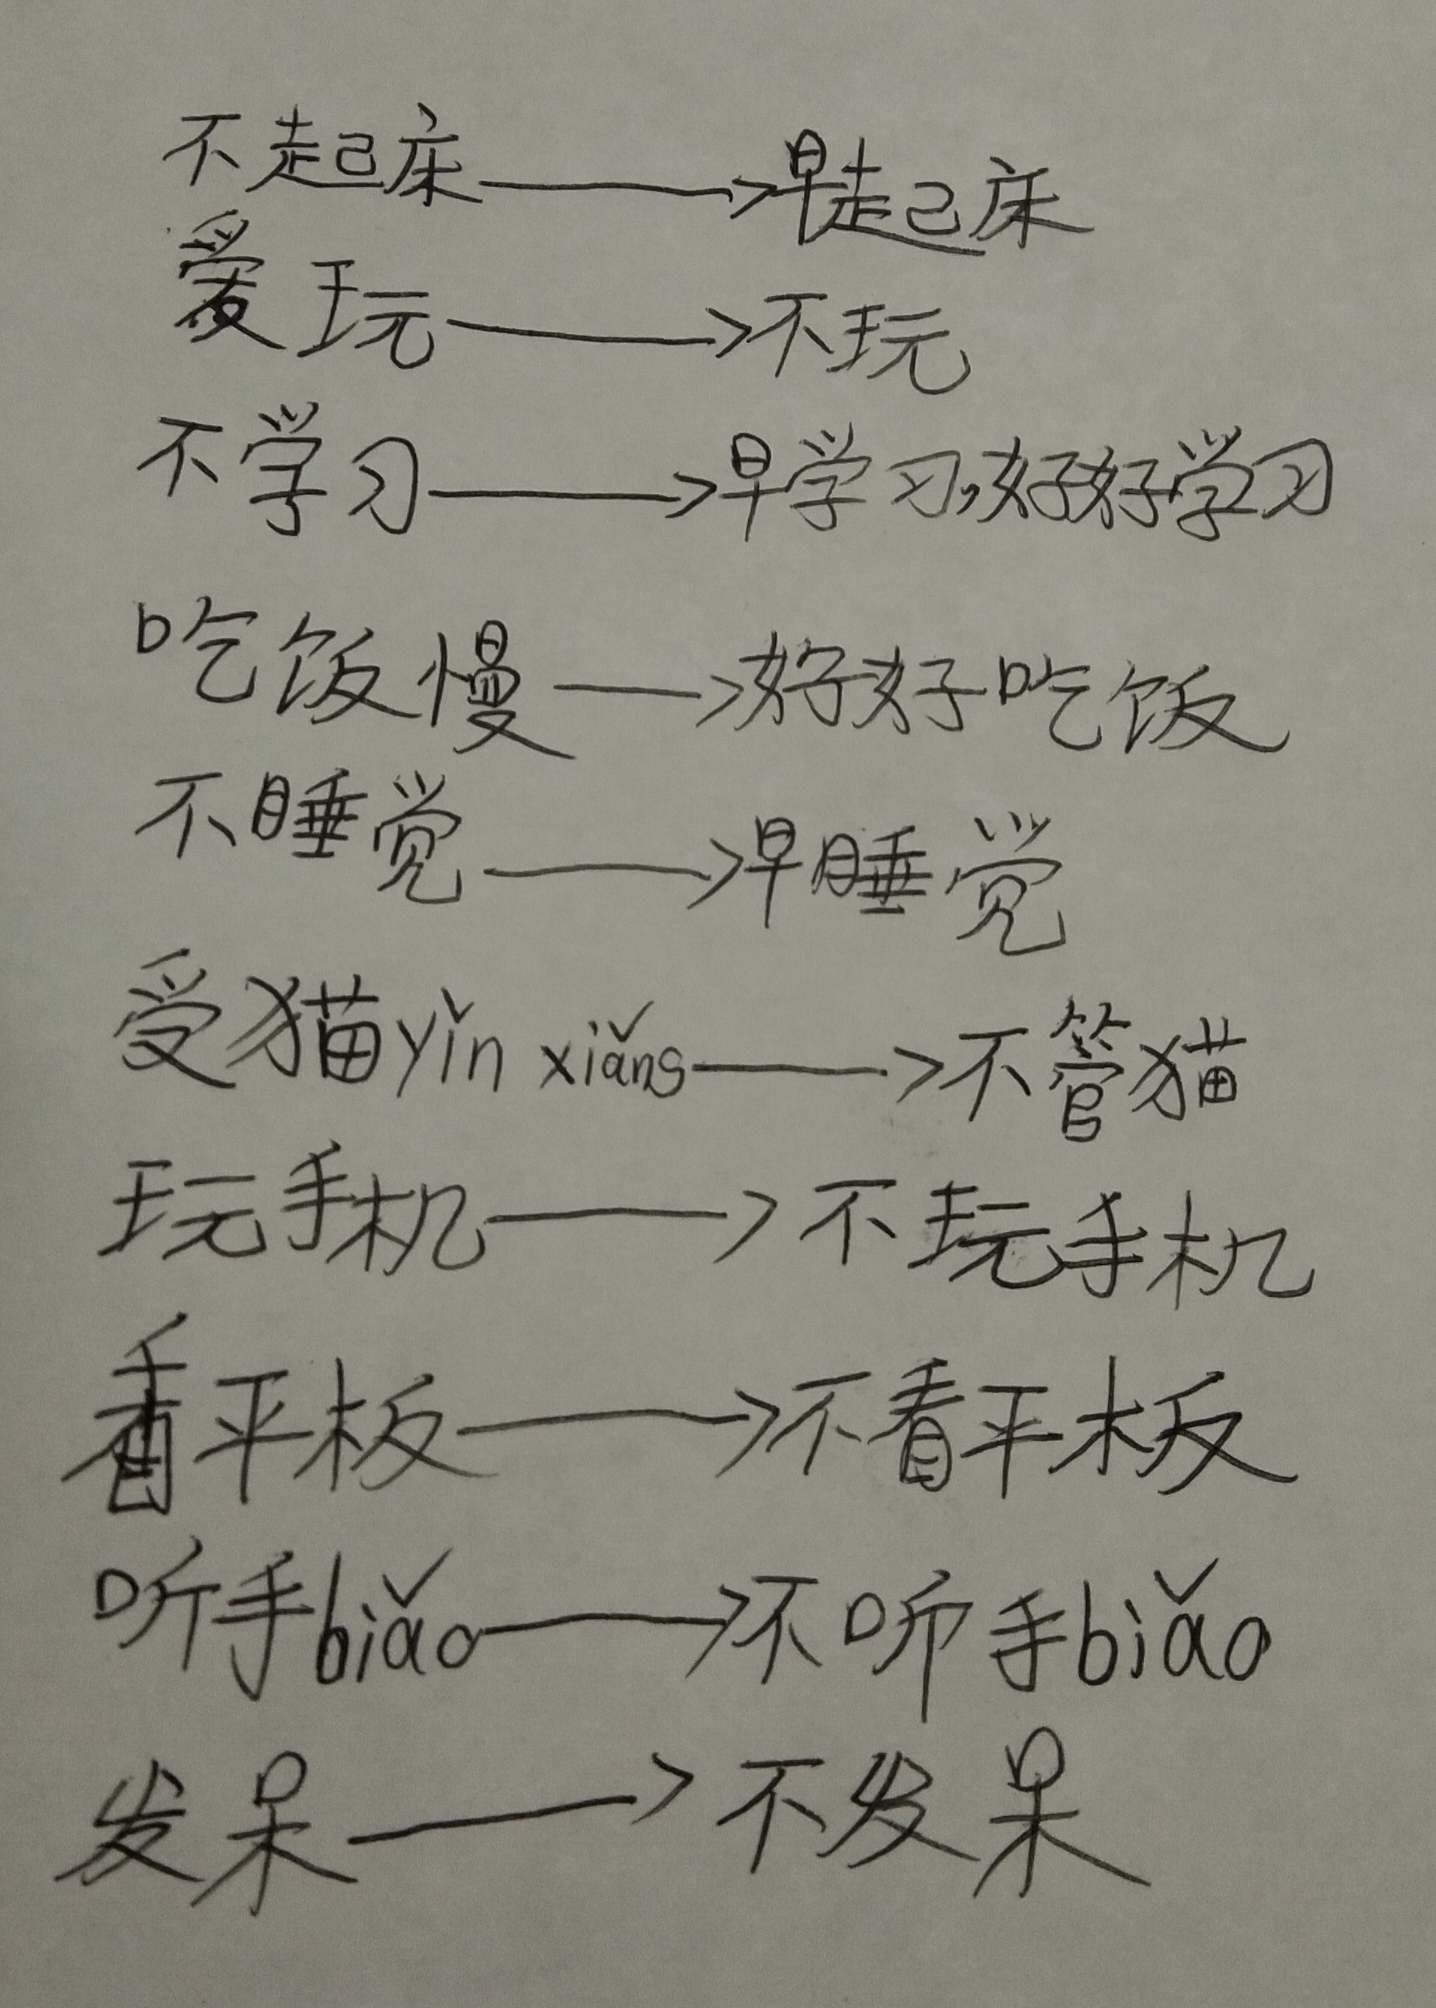 不起床→早起床
爱玩→不玩
不学习→早学习,好好学习
吃饭慢→好好吃饭
不睡觉→早睡觉
受猫yǐn xiǎng→不管猫
玩手机→不玩手机
看平板→不看平板
听手biǎo→不听手biǎo
发呆→不发呆